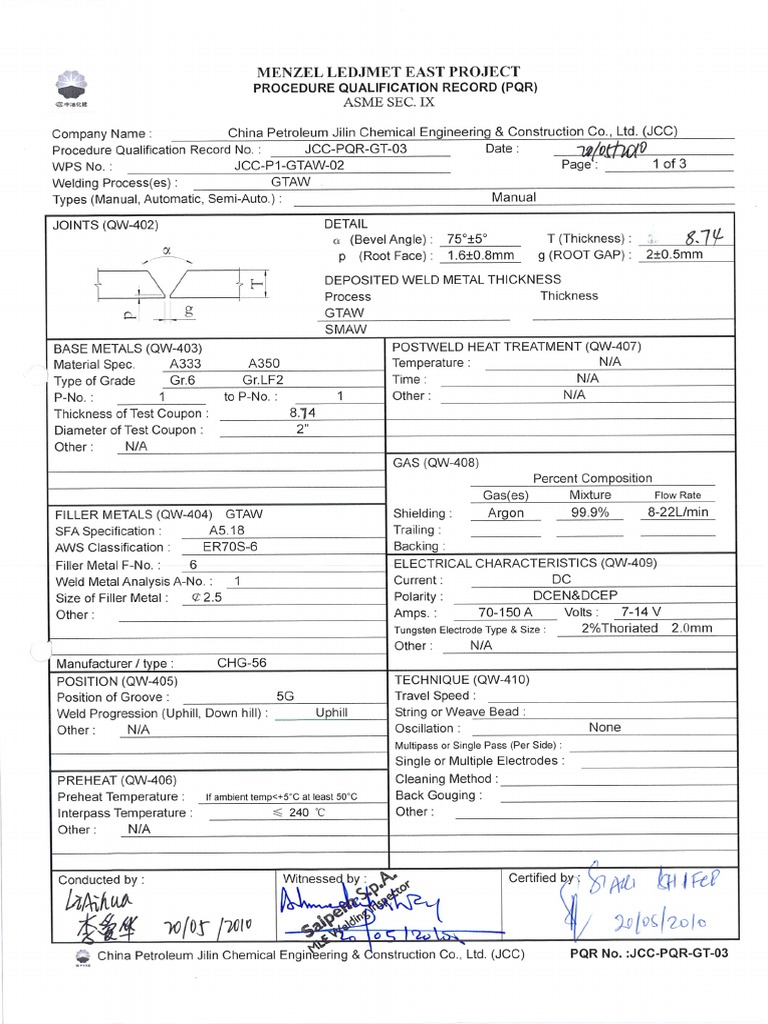 MENZEL LEDJMET EAST PROJECT
PROCEDURE QUALIFICATION RECORD (PQR)
ASME SEC. IX
Company Name : China Petroleum Jilin Chemical Engineering & Construction Co., Ltd. (JCC)
Procedure Qualification Record No. : JCC-PQR-GT-03 Date : 20/05/2010
WPS No. : JCC-P1-GTAW-02 Page : 1 of 3
Welding Process(es) : GTAW
Types (Manual, Automatic, Semi-Auto.) : Manual
JOINTS (QW-402)
α
T
p
g
DETAIL
α (Bevel Angle) : 75°±5° T (Thickness) : 8.74
p (Root Face) : 1.6±0.8mm g (ROOT GAP) : 2±0.5mm
DEPOSITED WELD METAL THICKNESS
Process Thickness
GTAW
SMAW
BASE METALS (QW-403)
Material Spec. A333 A350
Type of Grade Gr.6 Gr.LF2
P-No. : 1 to P-No. : 1
Thickness of Test Coupon : 8.74
Diameter of Test Coupon : 2"
Other : N/A
POSTWELD HEAT TREATMENT (QW-407)
Temperature : N/A
Time : N/A
Other : N/A
GAS (QW-408)
Percent Composition
Gas(es) Mixture Flow Rate
Shielding : Argon 99.9% 8-22L/min
Trailing :
Backing :
FILLER METALS (QW-404) GTAW
SFA Specification : A5.18
AWS Classification : ER70S-6
Filler Metal F-No. : 6
Weld Metal Analysis A-No. : 1
Size of Filler Metal : ¢ 2.5
Other :
Manufacturer / type : CHG-56
ELECTRICAL CHARACTERISTICS (QW-409)
Current : DC
Polarity : DCEN&DCEP
Amps. : 70-150 A Volts : 7-14 V
Tungsten Electrode Type & Size : 2%Thoriated 2.0mm
Other : N/A
POSITION (QW-405)
Position of Groove : 5G
Weld Progression (Uphill, Down hill) : Uphill
Other : N/A
TECHNIQUE (QW-410)
Travel Speed :
String or Weave Bead :
Oscillation : None
Multipass or Single Pass (Per Side) :
Single or Multiple Electrodes :
Cleaning Method :
Back Gouging :
Other :
PREHEAT (QW-406)
Preheat Temperature : If ambient temp<+5°C at least 50°C
Interpass Temperature : ≤ 240 ℃
Other : N/A
Conducted by :
20/05/2010
Witnessed by :
Saipem S.p.A.
MLE Welding Inspector
20/05/2010
Certified by :
20/05/2010
China Petroleum Jilin Chemical Engineering & Construction Co., Ltd. (JCC) PQR No. :JCC-PQR-GT-03